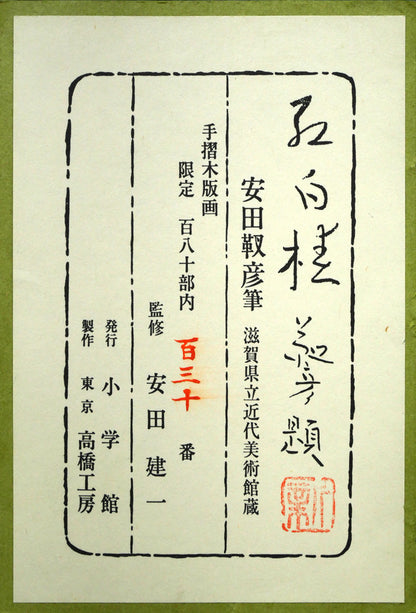 紅白
靫彦題
安田靫彦筆 滋賀県立近代美術館蔵
手摺木版画
限定 百八十部内 百三十 番
監修 安田建一
発行 小学館
製作 東京 高橋工房